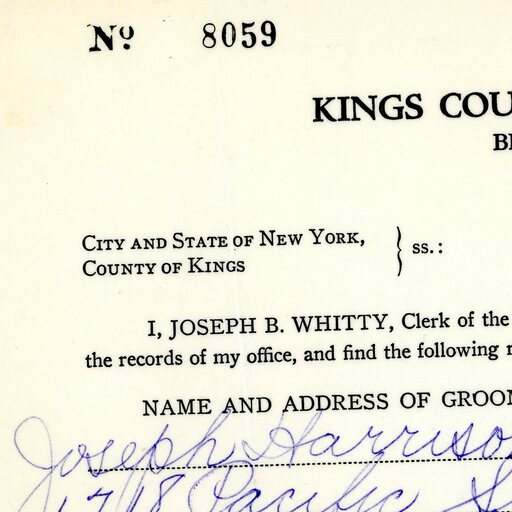 Nº 8059
KINGS COU
BR
CITY AND STATE OF NEW YORK,
COUNTY OF KINGS
} ss.:
I, JOSEPH B. WHITTY, Clerk of the
the records of my office, and find the following r
NAME AND ADDRESS OF GROOM
Joseph Harrison
1718 Pacific S